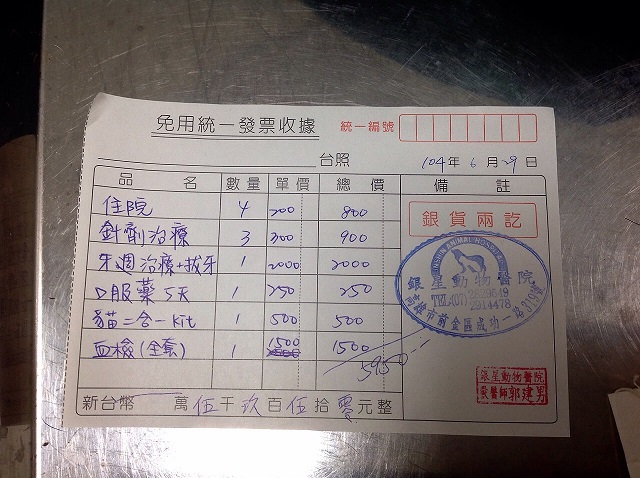 免用統一發票收據 統一編號
台照 104年6月29日
品名 數量 單價 總價 備註
住院 4 200 800
針劑治療 3 300 900
牙週治療+拔牙 1 2000 2000
口服藥5天 1 250 250
貓二合一kit 1 500 500
血檢(全套) 1 1500 1500
5950
新台幣 萬伍千玖百伍拾零元整
銀貨兩訖
銀星動物醫院
TEL:(07)
2914478
高雄市前金區成功一路319號
銀星動物醫院
獸醫師郭建男